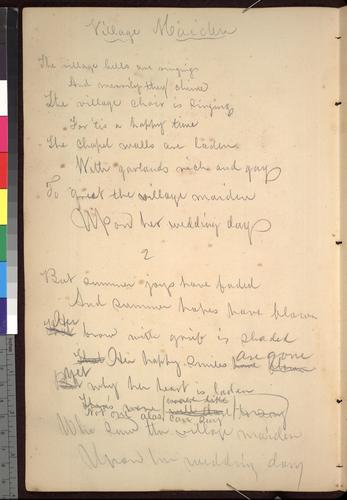 Village Maiden
The village bells are ringing
And merrily they chime
The village choir is singing
For 'tis a happy time
The chapel walls are laden
With garlands rich and gay
To greet the village maiden
Upon her wedding day
2
But summer joys have faded
And summer hopes have flown
Her brow with grief is shaded
Her happy smiles are gone
Yet why her heart is laden
Not one, alas, can say
Who saw the village maiden
Upon her wedding day